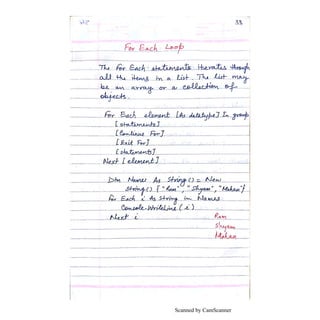 33
For Each Loop
The For Each statements iterates through
all the items in a list. The list may
be an array or a collection of
objects.
For Each element [As datatype] In group
[statements]
[Continue For]
[Exit For]
[statements]
Next [element]
Dim Names As String() = New
String() {"Ram", "Shyam", "Mohan"}
For Each i As String in Names
Console.WriteLine (i)
Next i
Ram
Shyam
Mohan
Scanned by CamScanner